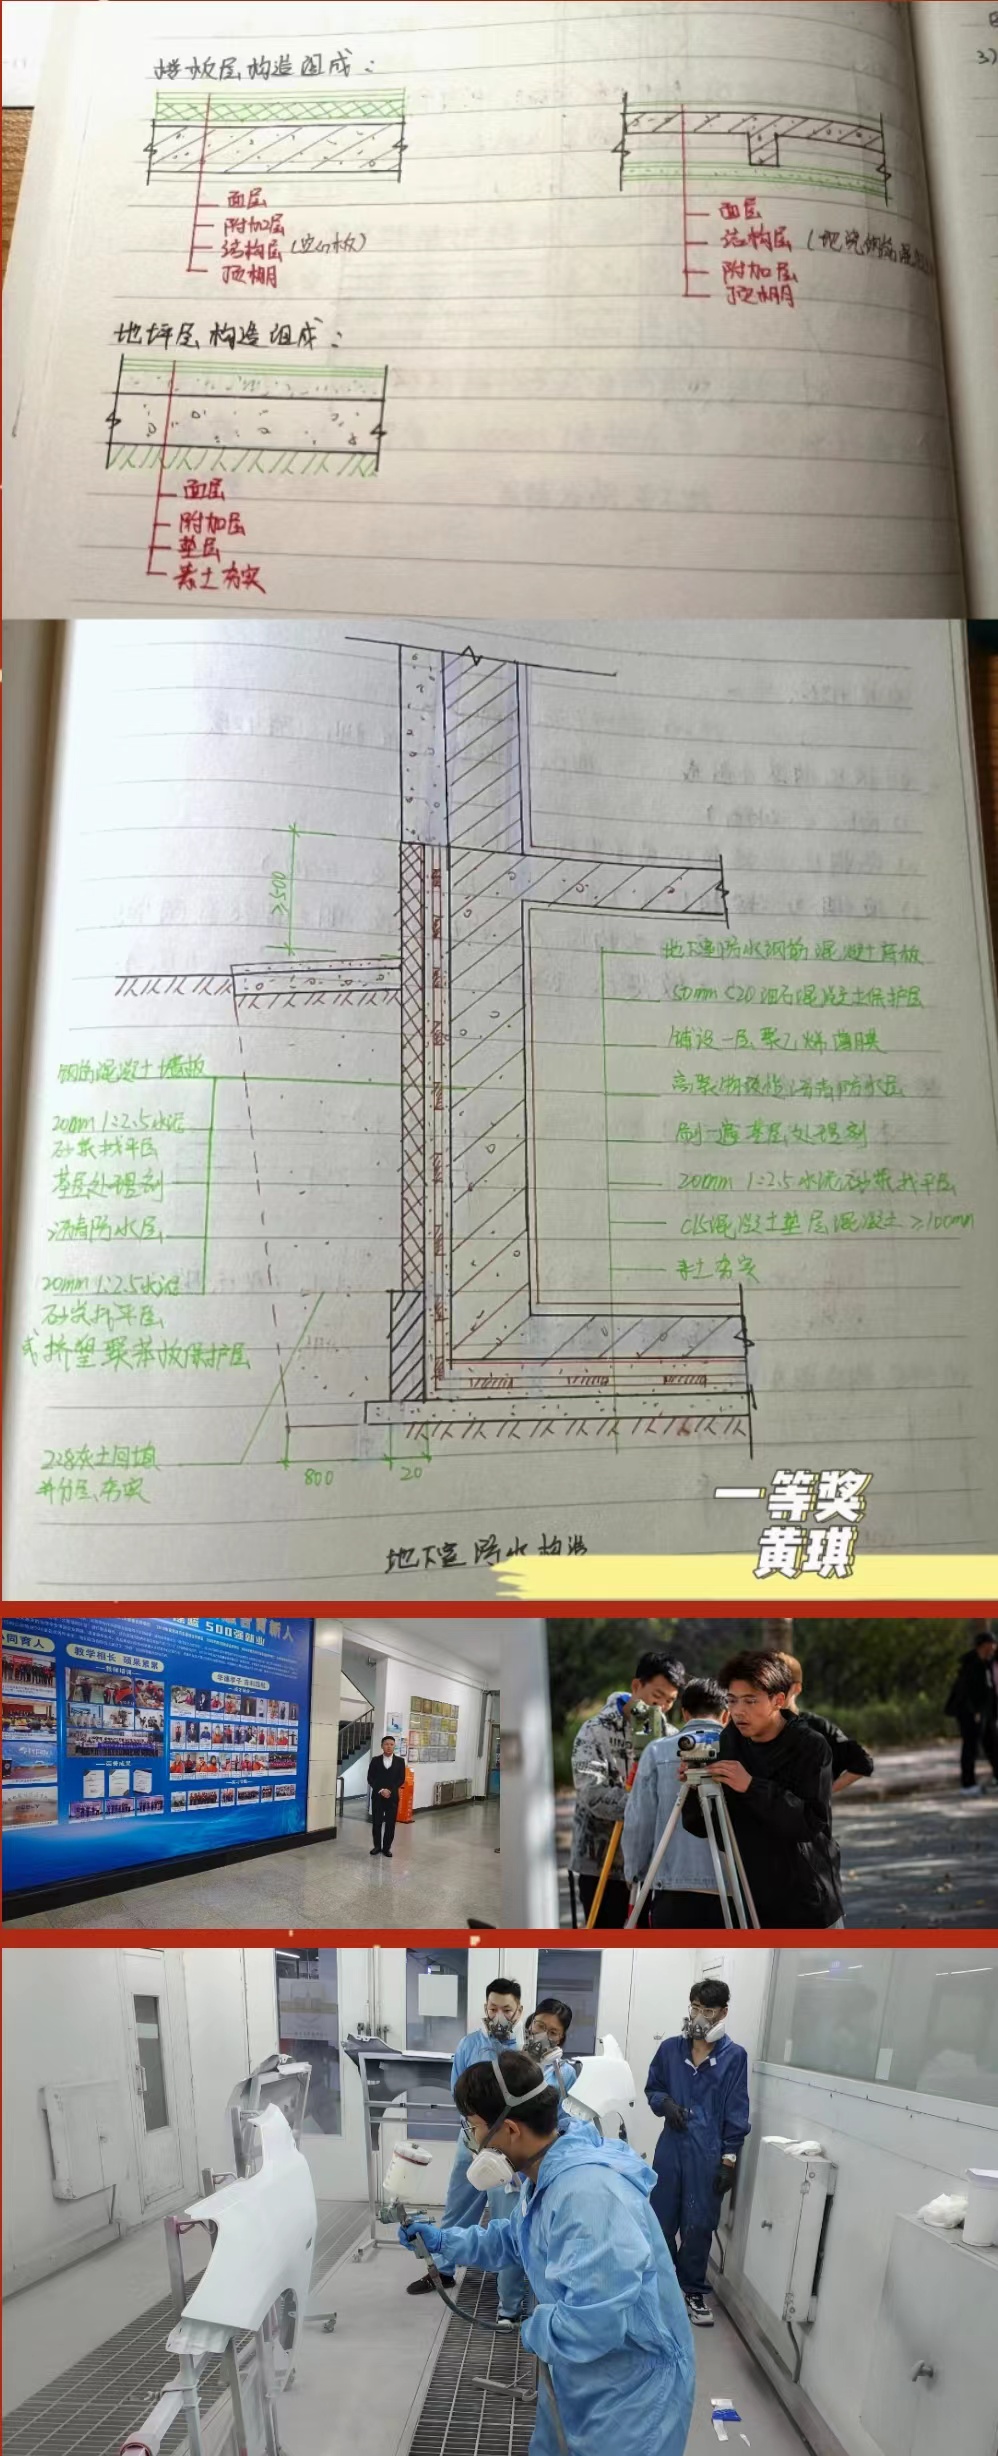 楼板层构造组成：
面层
附加层
结构层(空心板)
顶棚
面层
结构层(现浇钢筋混
附加层
顶棚
3)
地坪层构造组成：
面层
附加层
垫层
素土夯实
≥500
地下室防水钢筋混凝土底板
50mm C20细石混凝土保护层
铺设一层聚乙烯薄膜
高聚物改性沥青防水层
刷一遍基层处理剂
20mm 1:2.5水泥砂浆找平层
C15混凝土垫层混凝土≥100mm
素土夯实
钢筋混凝土墙板
20mm 1:2.5水泥
砂浆找平层
基层处理剂
沥青防水层
20mm 1:2.5水泥
砂浆找平层
或挤塑聚苯板保护层
2:8灰土回填
并分层夯实
800
20
地下室防水构造
一等奖
黄琪
育新人
500强就业
协同育人
教学相长 硕果累累